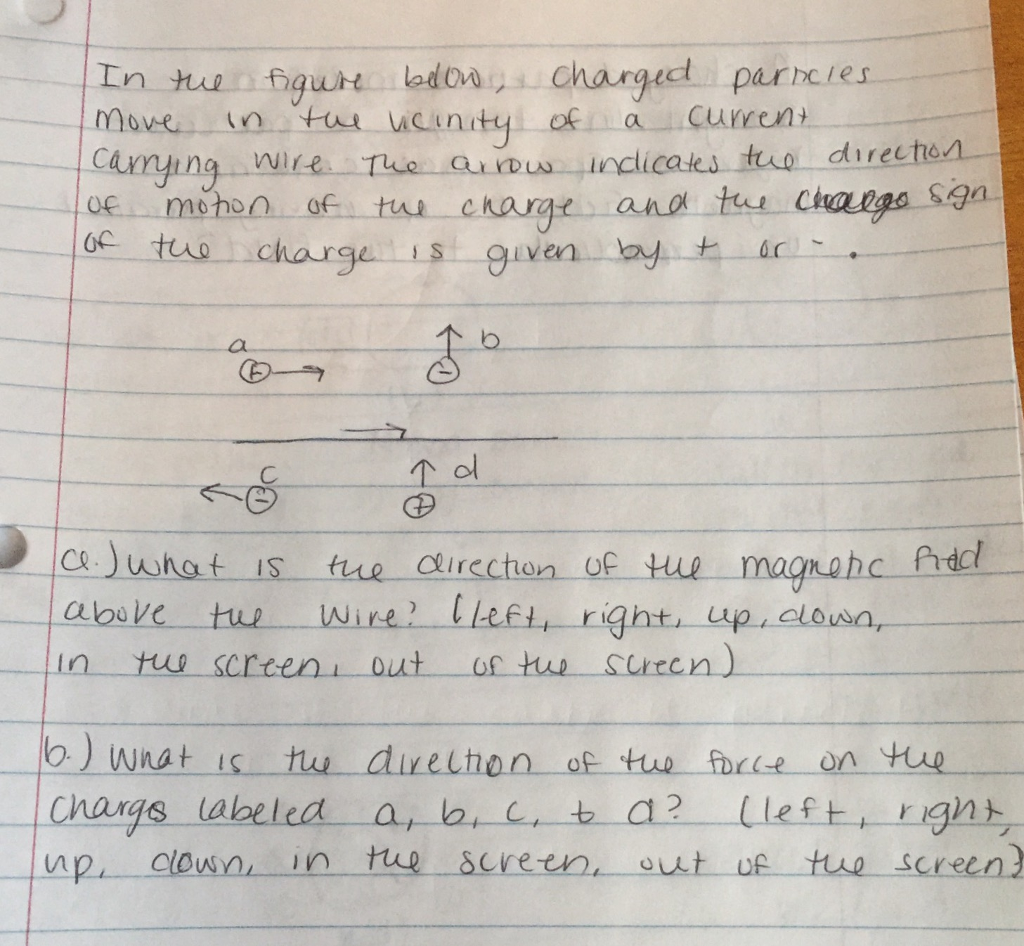 In the figure below, charged particles
move in the vicinity of a current
carrying wire. The arrow indicates the direction
of motion of the charge and the sign
of the charge is given by + or -.
a
b
+
-
c
d
-
+
a.) What is the direction of the magnetic field
above the wire? (left, right, up, down,
in the screen, out of the screen)
b.) What is the direction of the force on the
charges labeled a, b, c, + d? (left, right,
up, down, in the screen, out of the screen?